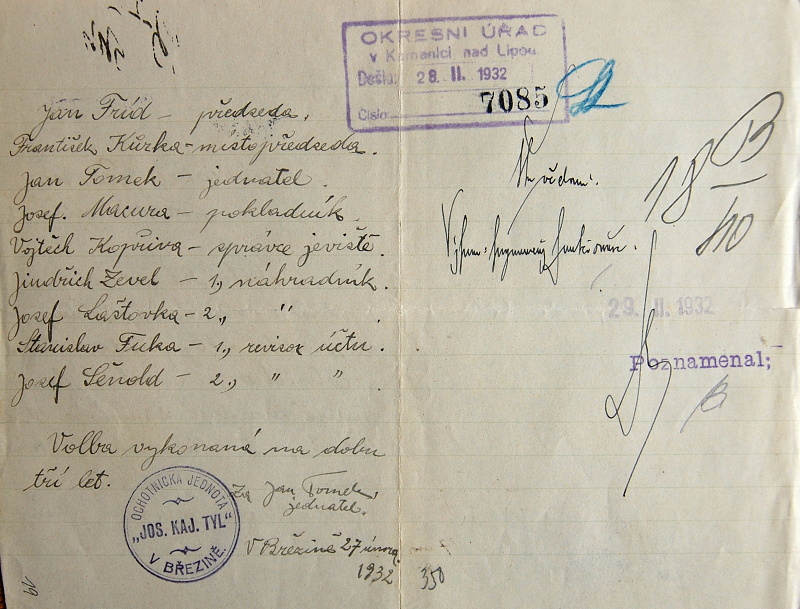 OKRESNÍ ÚŘAD
v Kamenici nad Lipou
Došlo: 28. II. 1932
Číslo: 7085
Jan Fríd - předseda.
František Kůrka - místopředseda.
Jan Tomek - jednatel.
Josef. Macura - pokladník.
Vojtěch Kopřiva - správce jeviště.
Jindřich Zevel - 1., náhradník.
Josef Laštovka - 2., "
Stanislav Fuka - 1., revisor účtu.
Josef - 2., " "
Volba vykonaná na dobu
tří let.
Za Jan Tomek,
jednatel.
V Březině 27 února
1932
OCHOTNICKÁ JEDNOTA
„JOS. KAJ. TYL"
V BŘEZINĚ.
350
19
18 B
/10
29. II. 1932
Poznamenal;